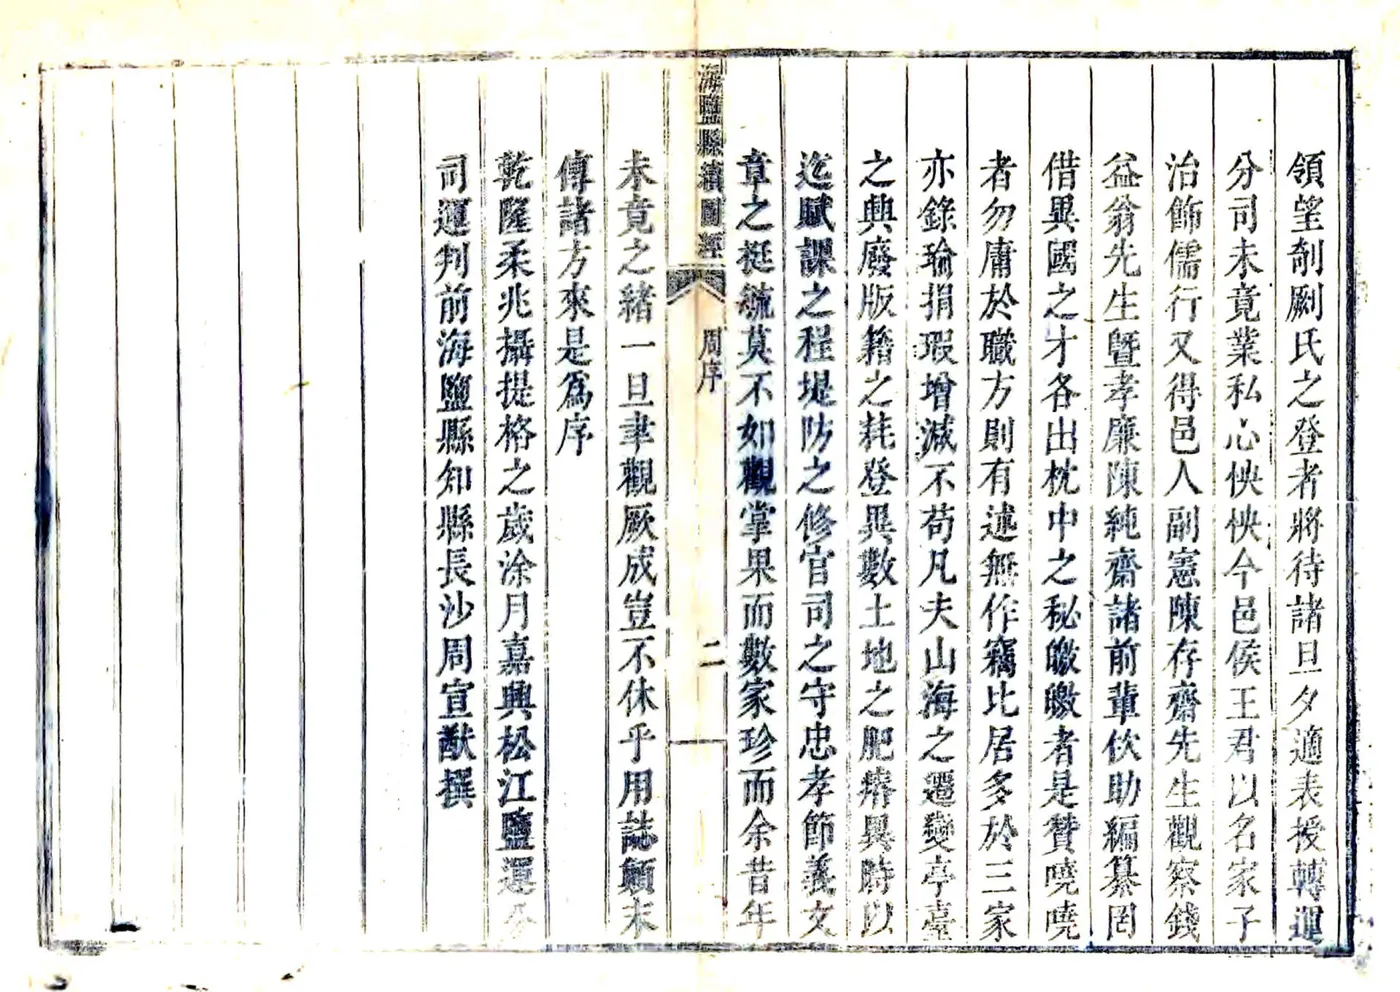 領望剞劂氏之登者將待諸旦夕適表授轉運
分司未竟業私心怏怏今邑侯王君以名家子
治飾儒行又得邑人副憲陳存齋先生觀察錢
益翁先生曁孝廉陳純齋諸前輩佽助編纂罔
借異國之才各出枕中之秘皦皦者是贊嘵嘵
者勿庸於職方則有述無作竊比居多於三家
亦錄瑜捐瑕增減不苟凡夫山海之遷變亭臺
之興廢版籍之耗登異數土地之肥瘠異時以
迄賦課之程堤防之修官司之守忠孝節義文
章之挺毓莫不如觀掌果而數家珍而余昔年
海鹽縣續圖經
周序
二
未竟之緒一旦聿觀厥成豈不休乎用誌顛末
傳諸方來是爲序
乾隆柔兆攝提格之歲涂月嘉興松江鹽運分
司運判前海鹽縣知縣長沙周宣猷撰